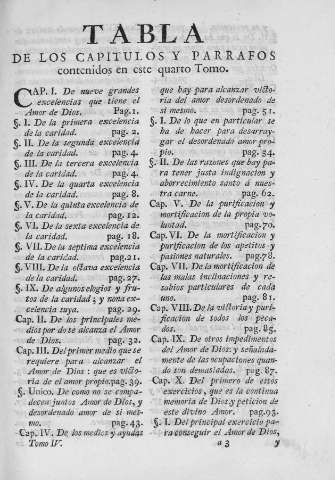 TABLA
DE LOS CAPITULOS Y PARRAFOS
contenidos en este quarto Tomo.
CAP. I. De nueve grandes
excelencias que tiene el
Amor de Dios. Pag. 1.
§. I. De la primera excelencia
de la caridad. pag. 2.
§. II. De la segunda excelencia
de la caridad. pag. 4.
§. III. De la tercera excelencia
de la caridad. pag. 4.
§. IV. De la quarta excelencia
de la caridad. pag. 8.
§. V. De la quinta excelencia de
la caridad. pag. 12.
§. VI. De la sexta excelencia de
la caridad. pag. 18.
§. VII. De la septima excelencia
de la caridad. pag. 21.
§. VIII. De la octava excelencia
de la caridad. pag. 27.
§. IX. De algunos elogios y frutos
de la caridad; y nona excelencia
suya. pag. 29.
Cap. II. De los principales medios
por do se alcanza el Amor
de Dios. pag. 32.
Cap. III. Del primer medio que se
requiere para alcanzar el
Amor de Dios: que es victoria
de el amor propio. pag. 39.
§. Unico. De como no se compadecen
juntos Amor de Dios, y
desordenado amor de si mesmo.
pag. 43.
Cap. IV. De los medios y ayudas
Tomo IV.
que hay para alcanzar victoria
del amor desordenado de
si mesmo. pag. 51.
§. I. De lo que en particular se
ha de hacer para desarraygar
el desordenado amor propio.
pag. 54.
§. II. De las razones que hay para
tener justa indignacion y
aborrecimiento santo á nuestra
carne. pag. 62.
Cap. V. De la purificacion y
mortificacion de la propia voluntad.
pag. 70.
Cap. VI. De la mortificacion y
purificacion de los apetitos y
pasiones naturales. pag. 78.
Cap. VII. De la mortificacion de
las malas inclinaciones y resabios
particulares de cada
uno. pag. 81.
Cap. VIII. De la victoria y purificacion
de todos los pecados.
pag. 85.
Cap. IX. De otros impedimentos
del Amor de Dios: y señaladamente
de las ocupaciones quando
son demasiadas. pag. 87.
Cap. X. Del primero de estos
exercicios, que es la continua
memoria de Dios, y peticion de
este divino Amor. pag. 93.
§. I. Del principal exercicio para
conseguir el Amor de Dios,
a 3 y